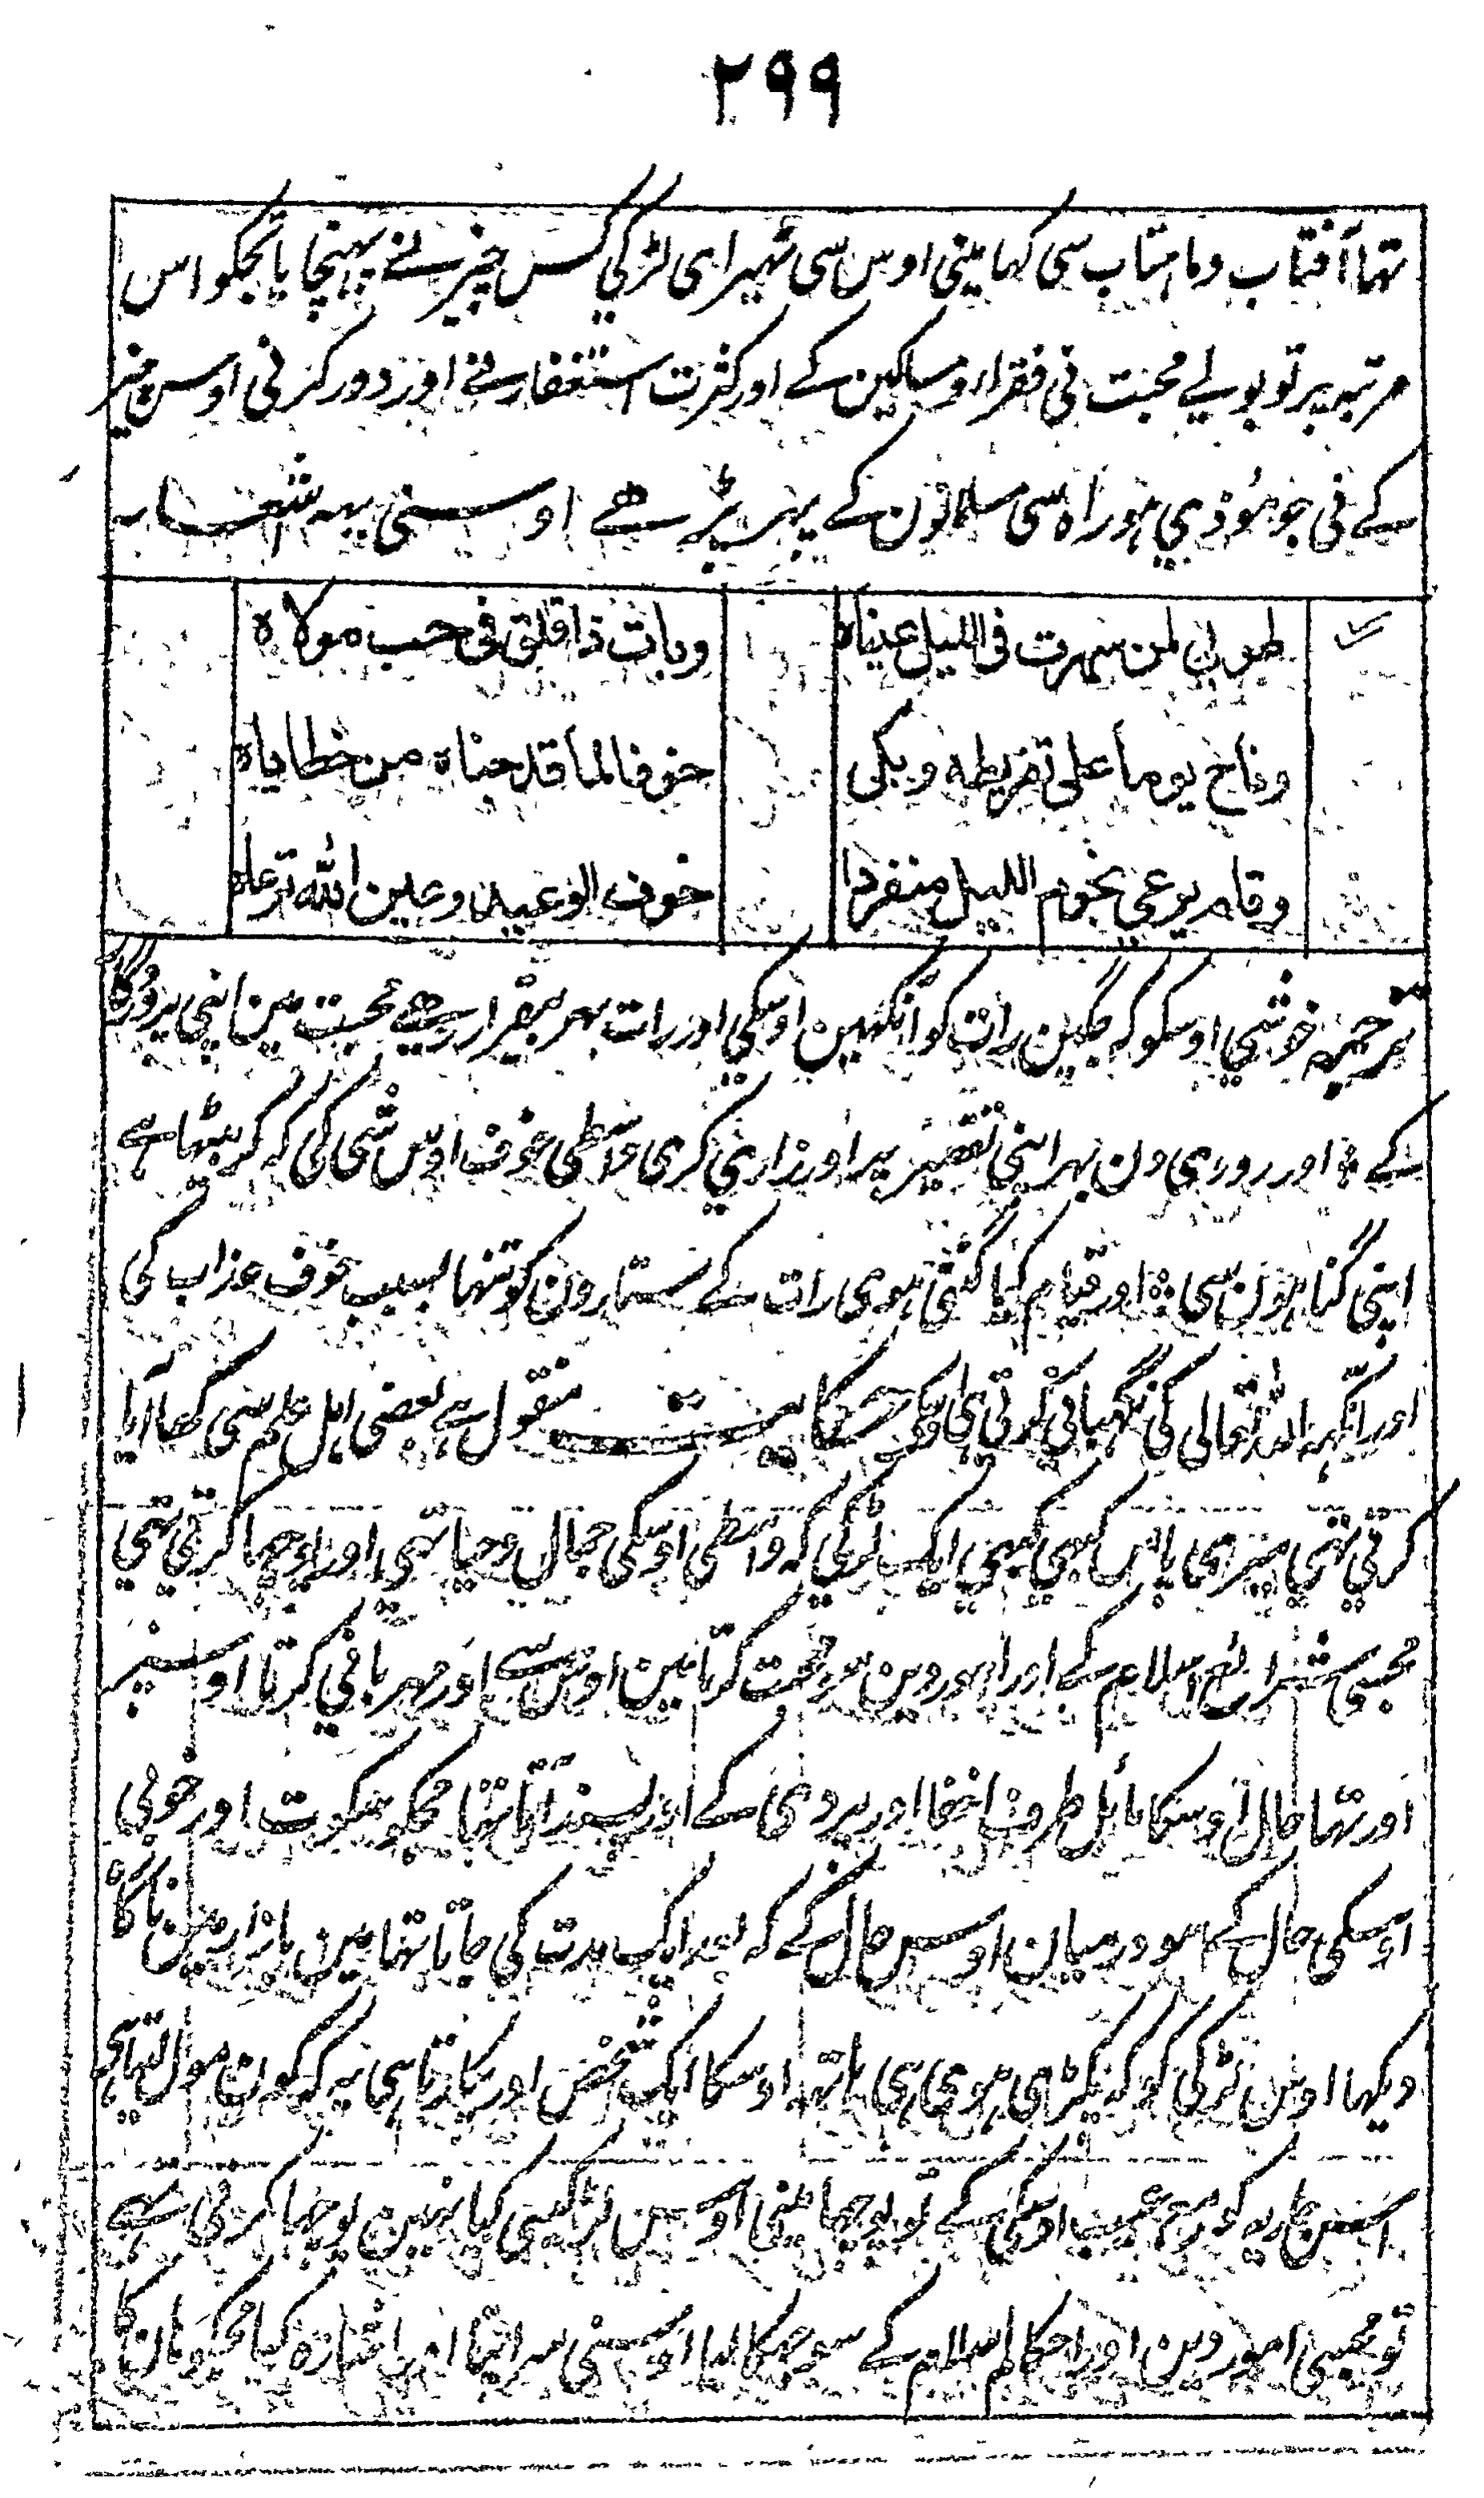 ۲۹۹
تہا آفتاب وماہتاب سی کہا مینی اوس سی ٹہیر ای لڑکی کس چیز نے پہنچایا تجکو اس
مرتبہ پر تو بولے محبت نی فقراء ومساکین کے اور کثرت استغفار نے اور دور کرنی اوس چیز
کے نی جو موذی ہو راہ سی مسلمانون کے پہر پڑھے اوسنی یہہ اشعار
طوبی لمن سهرت فی اللیل عیناه
وبات ذا قلق فی حب مولاه
وناح یوما علی تفریطه وبکی
خوفا لما قد جناه من خطایاه
وقام یرعی نجوم اللیل منفردا
خوف الوعید وعین الله ترعاه
ترجمہ خوشی اوسکو کہ جگین رات کو آنکہین اوسکی اور رات بہر بیقرار رہے محبت مین اپنی پروردگار
کے ٭ اور رووی دن بہر اپنی تقصیر پر اور زاری کری واسطی خوف اوس شی کی کہ کر بیٹہا ہے
اپنی گناہون سی ٭ اور قیام کیا گنتی ہوی رات کے ستارون کو تنہا بسبب خوف عذاب کی
اور آنکہہ اللہ تعالی کی نگہبانی کرتی ہی اوسکی حکایت منقول ہے بعضی اہل علم سی کہا آیا
کرتی تہی میری پاس کبہی کبہی ایک لڑکی کہ واسطی اوسکی جمال وحیا تہی اور پوچہا کرتی تہی
مجسی شرائع اسلام کے اور امور دین سو محبت کرتا مین اوس سے اور مہربانی کرتا اوسپر
اور تہا حال اوسکا مائل طرف اخفا اور پردی کے اور پسند آتا تہا مجکو سکوت اور خوبی
اوسکی حال کے سو درمیان اوس حال کے کہ بعد ایک مدت کی جاتا تہا مین بازار مین ناگاہ
دیکہا اوس لڑکی کو کہ پکڑی ہوی ہی ہاتہہ اوسکا ایک شخص اور پکارتا ہی یہ کہ کون مول لیتا ہی
اس جاریہ کو مع عیب اوسکی کے تو پوچہا مینی اوس لڑکی سی کیا نہین پوچہا کرتی تہی
تو مجسی امور دین اور احکام اسلام کے سو جہکا لیا اوسنی سر اپنا اور اشارہ کیا مجکو ہان کا